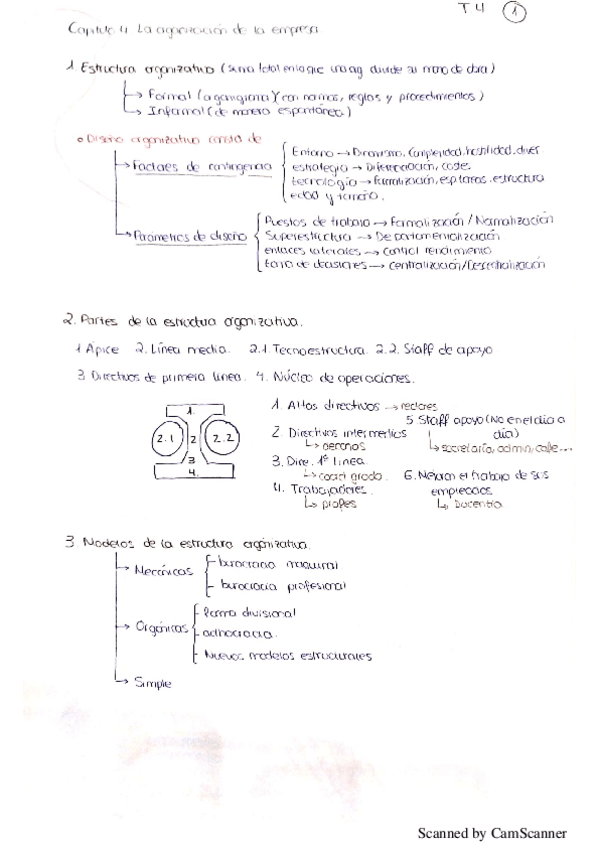 T4 1
Capitulo 4 La organización de la empresa.
1 Estructura organizativa (suma total en la que una org. divide su mano de obra)
Formal (organigrama) (con normas, reglas y procedimientos)
Informal (de manera espontánea)
Diseño organizativo consta de
Factores de contingencia
Entorno → Dinamismo, Complejidad, hostilidad, diver
estrategia → Diferenciación, coste.
tecnología → formalización, estructura
edad y tamaño.
Parámetros de diseño
Puestos de trabajo → Formalización / Normalización
Superestructura → Departamentalización
enlaces laterales → control rendimiento
toma de decisiones → centralización/Descentralización
2. Partes de la estructura organizativa.
1 Apice 2. Línea media. 2.1. Tecnoestructura 2.2. Staff de apoyo
3 Directivos de primera linea. 4. Núcleo de operaciones.
1.
2.1 2 2.2
3
4.
1. Altos directivos → rectores
2. Directivos intermedios
↳ decanos
3. Dire. 1ª linea.
↳ coord grado.
4. Trabajadores.
↳ profes
5 Staff apoyo (No en el dia a dia)
↳ secretaría, admin, calle...
6. Mejoran el trabajo de sus
empleados
↳ Docentia
3 Modelos de la estructura organizativa.
Mecánicas
burocracia maquinal
burocracia profesional
Orgánicas
forma divisional
adhocracia.
Nuevos modelos estructurales
Simple
Scanned by CamScanner